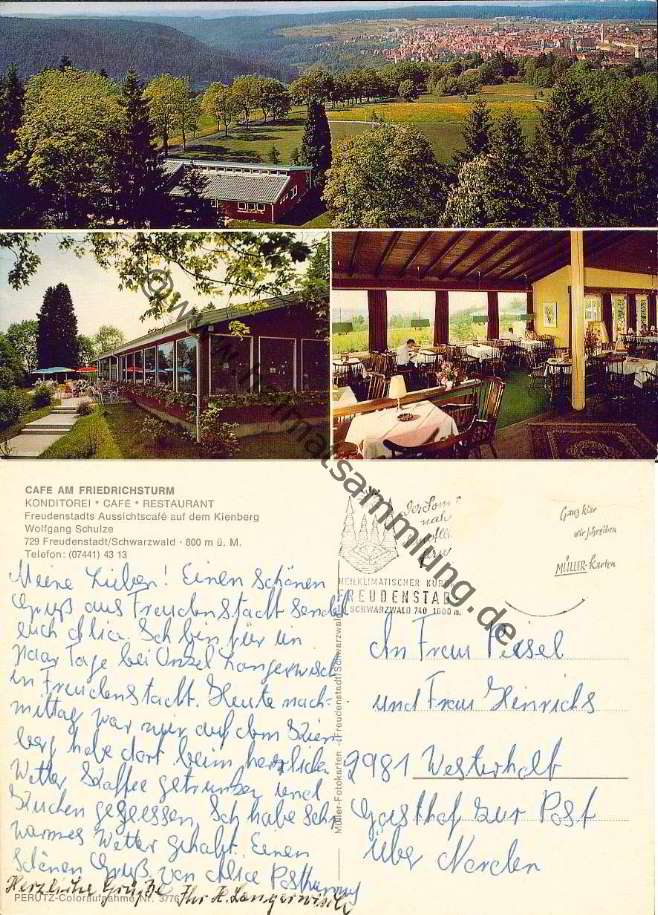 © www.heimatsammlung.de
CAFE AM FRIEDRICHSTURM
KONDITOREI * CAFE * RESTAURANT
Freudenstadts Aussichtscafé auf dem Kienberg
Wolfgang Schulze
729 Freudenstadt/Schwarzwald · 800 m ü. M.
Telefon: (07441) 43 13
HEILKLIMATISCHER KURORT
FREUDENSTADT
SCHWARZWALD 740 - 1000 m.
Ganz hier
wir schreiben
MÜLLER-Karten
Meine Lieben! Einen schönen
Gruß aus Freudenstadt sendet
euch Alice. Ich bin für ein
paar Tage bei Onkel Langerwisch
in Freudenstadt. Heute nach-
mittag war wir auf dem Kien-
berg habe dort beim herzlichen
Wetter Kaffee getrunken und
Kuchen gegessen. Ich habe sehr
warmes Wetter gehabt. Einen
schönen Gruß von Alice
Herzliche Grüße Ihr H. Langerwisch
PERUTZ-Coloraufnahme Nr. 3/76
Müller-Fotokarten - Freudenstadt/Schwarzwald
An Frau Piesel
und Frau Heinrichs
2981 Westerholt
Gasthof zur Post
über Norden